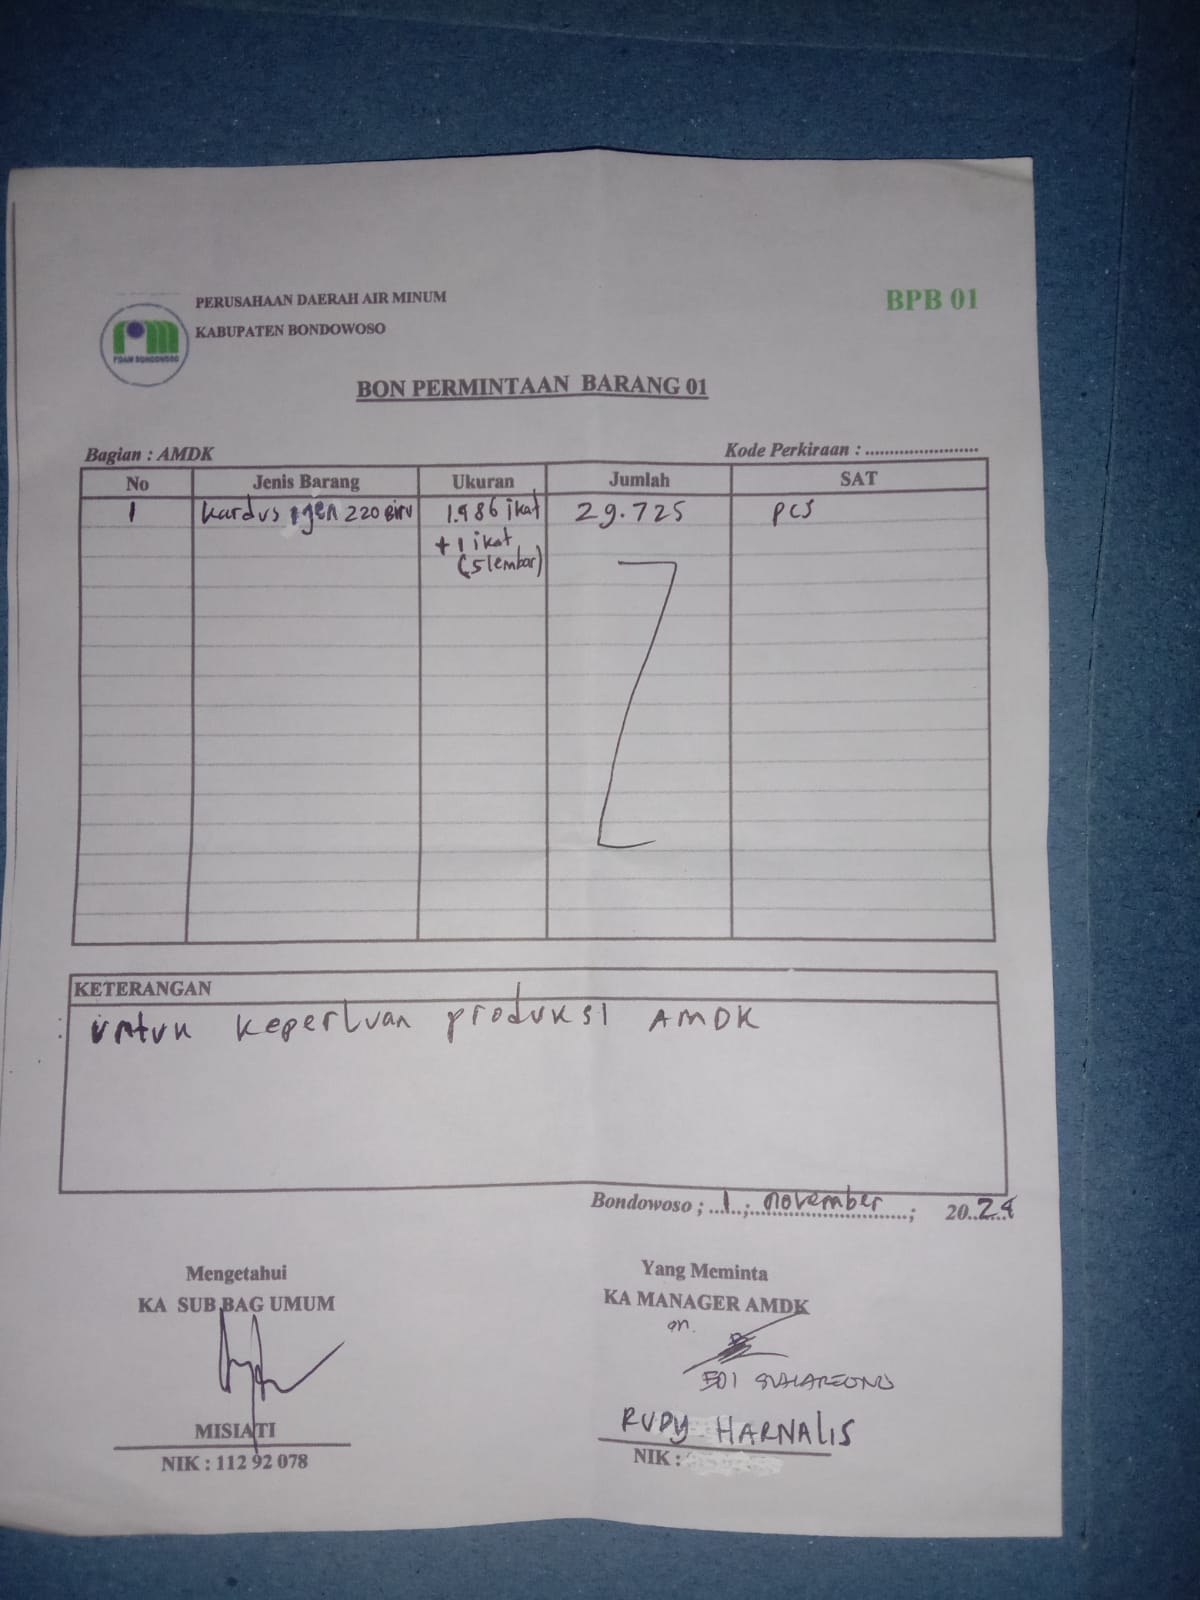 PERUSAHAAN DAERAH AIR MINUM
KABUPATEN BONDOWOSO
BPB 01
PDAM BONDOWOSO
BON PERMINTAAN BARANG 01
Bagian : AMDK
Kode Perkiraan : ........................
No Jenis Barang Ukuran Jumlah SAT
1 kardus igen 220 Biru 1.986 ikat 29.725 pcs
+ 1 ikat
(5 lembar)
KETERANGAN
: untuk keperluan produksi AMDK
Bondowoso ; ...1...; november ; 20..24
Mengetahui
KA SUB BAG UMUM
MISIATI
NIK : 112 92 078
Yang Meminta
KA MANAGER AMDK
an.
EDI
RUDY HARNALIS
NIK :